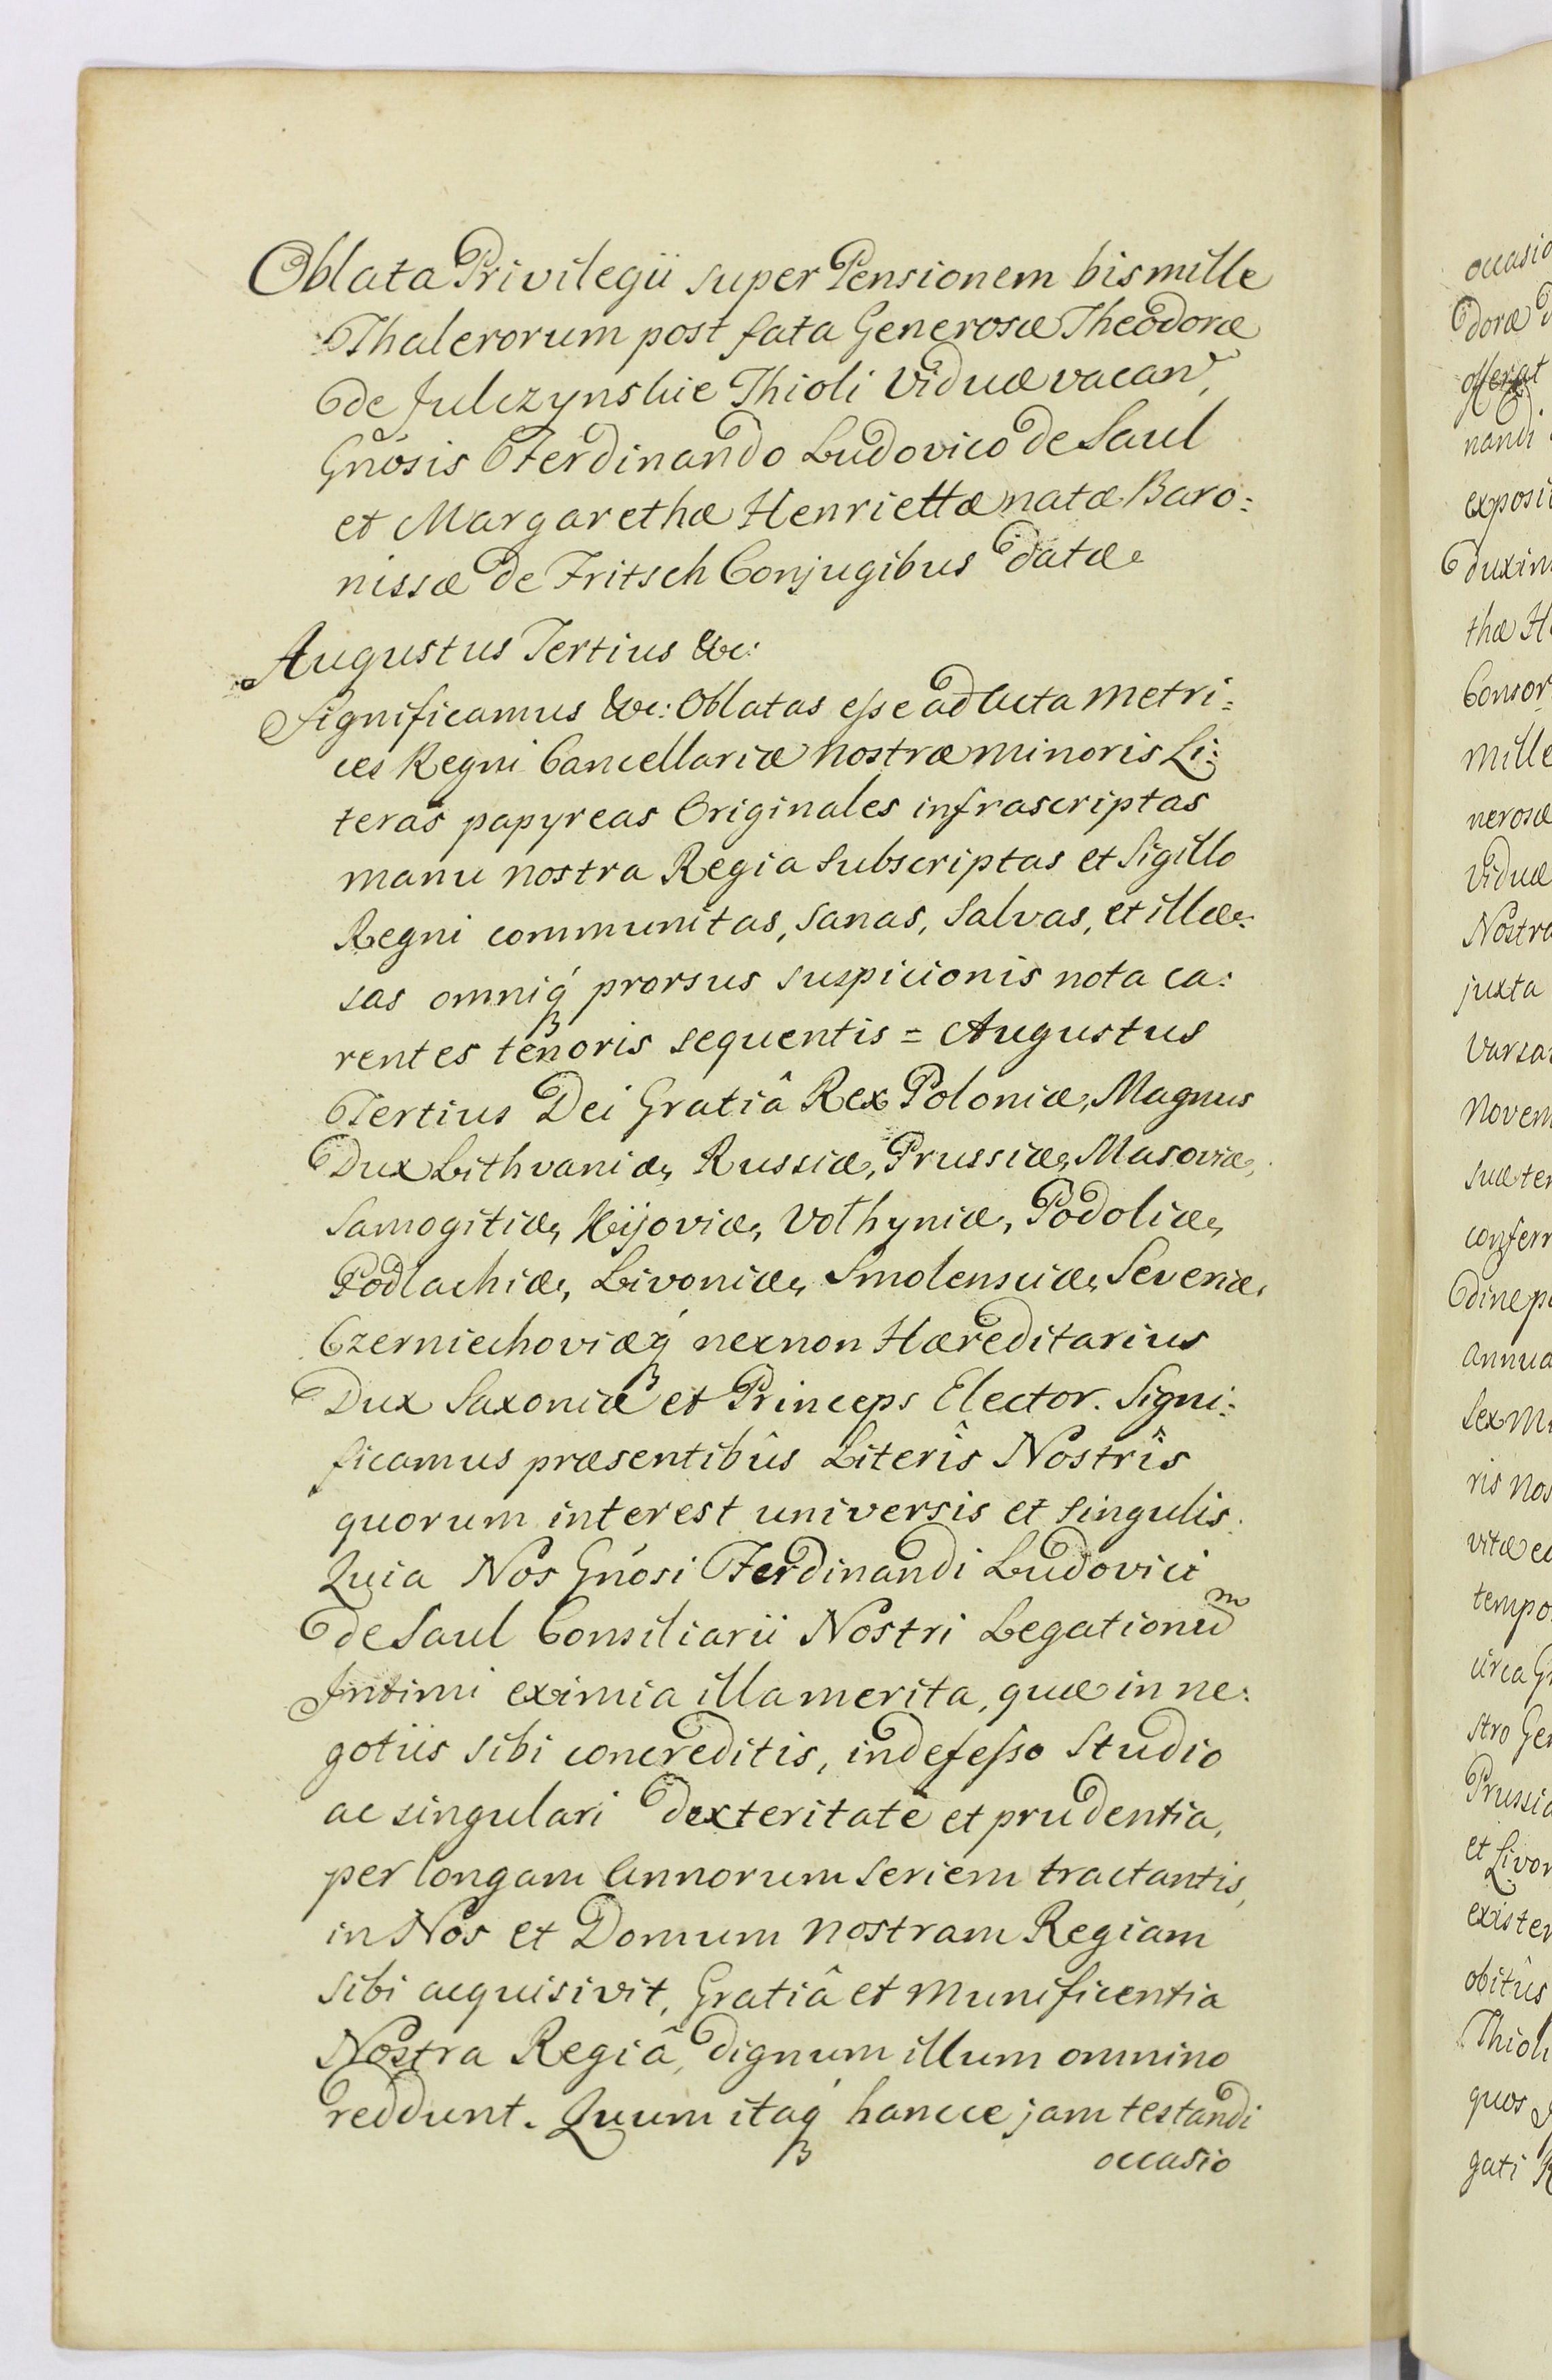 Oblata Privilegii super Pensionem bismille
Thalerorum post fata Generosæ Theodoræ
de Julczynskie Thioli Viduæ vacan̄,
Gnósis Ferdinando Ludovico de Saul
et Margarethæ Henriettæ natæ Baro:
nissæ de Fritsch Conjugibus datæ.
Augustus Tertius &c:
Significamus &c: Oblatas eſse ad Acta Metri:
ces Regni Cancellariæ nostræ minoris Li:
teras papyreas Originales infrascriptas
manu nostra Regia subscriptas et Sigillo
Regni communitas, sanas, salvas, et illæ:
sas omniq́ prorsus suspicionis nota ca:
rentes tenoris sequentis = Augustus
Tertius Dei Gratiâ Rex Poloniæ, Magnus
Dux Lithvaniæ, Russiæ, Prussiæ, Masoviæ,
Samogitiæ, Kijoviæ, Volhyniæ, Podoliæ,
Podlachiæ, Livoniæ, Smolensciæ, Severiæ,
Czerniechoviæq́ necnon Hæreditarius
Dux Saxoniæ et Princeps Elector. Signi:
ficamus præsentibûs Literîs Nostrîs
quorum interest universis et singulis.
Quia Nos Gnósi Ferdinandi Ludovici
de Saul Consiliarii Nostri Legationum
Intimi eximia illa merita, quæ in ne:
gotiis sibi concreditis, indefeſso Studio
ac singulari dexteritate et prudentia,
per longam Annorum seriem tractantis,
in Nos et Domum nostram Regiam
sibi acquisivit, Gratiâ et Munificentia
Nostra Regiâ, dignum illum omnino
reddunt. Quum itaq́ hancce jam testandi
occasio
occasio
doræ d
offerat
nandi
exposit
duxim
thæ H
Consor
Mille
nerosæ
Viduæ
Nostra
juxta
Varsa
Novem
suæ te
conferr
dine p
Annua
Sex M
ris Nos
vitæ e
tempo
circa G
stro Ge
Prussiæ
et Livon
existen
obitûs
Thioli
quos
gati R